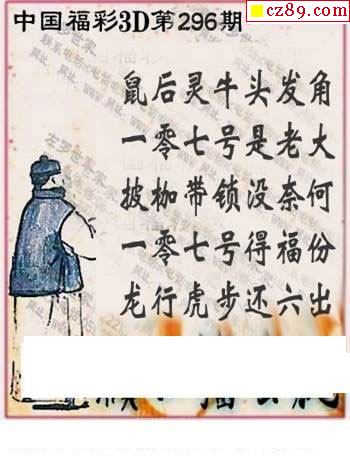 cz89.com
中国福彩3D第296期
鼠后灵牛头发角
一零七号是老大
披枷带锁没奈何
一零七号得福份
龙行虎步还六出